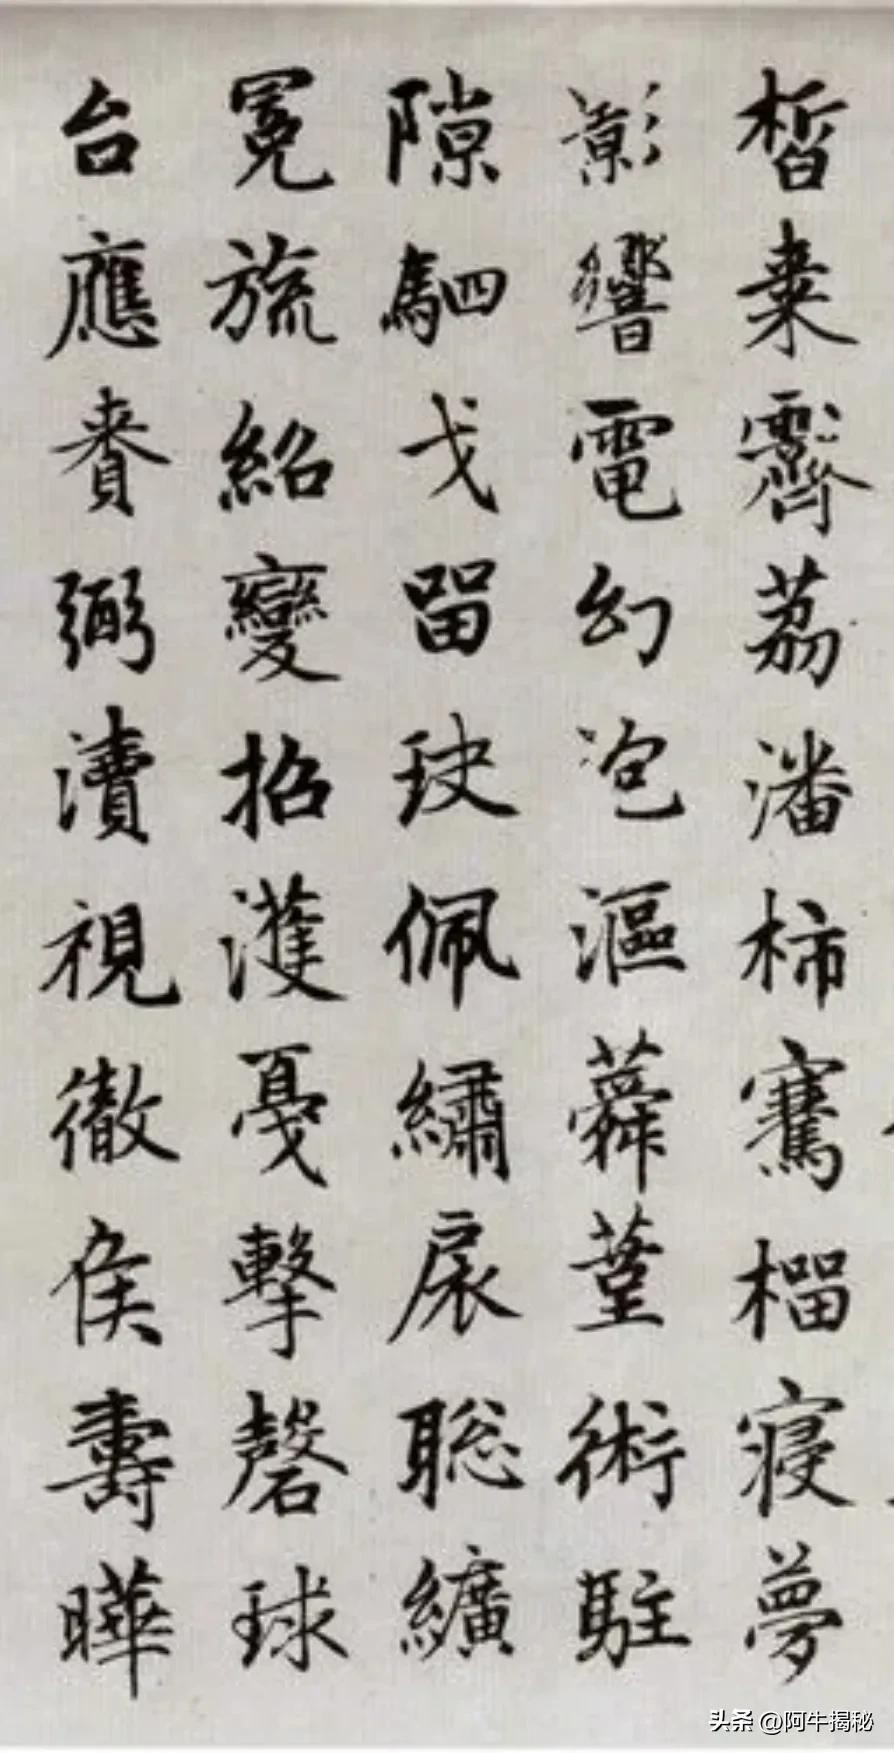 晳棗霽荔潘柿騫榴寢夢
影響電幻泡漚蕣菫術駐
隙駟戈留玦佩繡扆聡纊
冕旒紹變招濩戛擊磬球
台應賚弼瀆視徹侯壽曄
头条 @阿牛揭秘